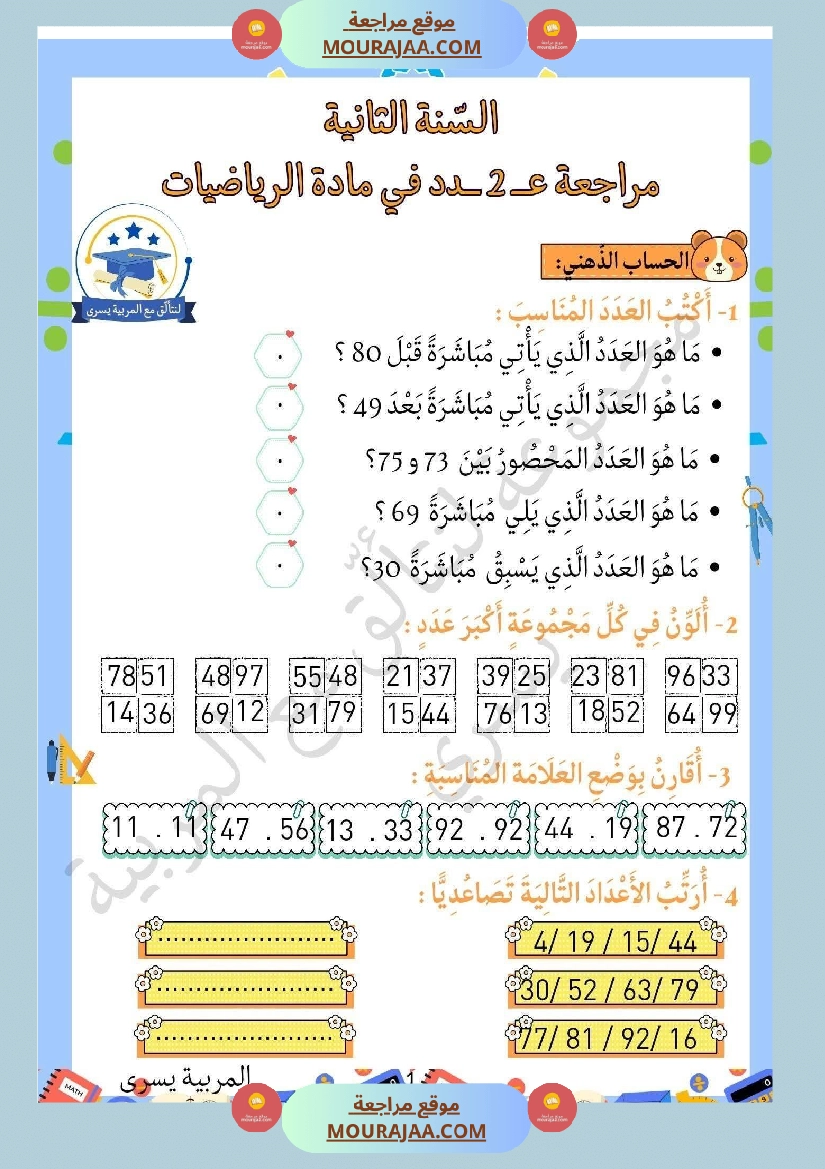 موقع مراجعة
MOURAJAA.COM
السّنة الثانية
مراجعة عـ2ـدد في مادة الرياضيات
لنتألّق مع المربية يسرى
الحساب الذّهني:
1- أَكْتُبُ العَدَدَ المُنَاسِبَ :
• مَا هُوَ العَدَدُ الَّذِي يَأْتِي مُبَاشَرَةً قَبْلَ 80 ؟ .
• مَا هُوَ العَدَدُ الَّذِي يَأْتِي مُبَاشَرَةً بَعْدَ 49 ؟ .
• مَا هُوَ العَدَدُ المَحْصُورُ بَيْنَ 73 و 75؟ .
• مَا هُوَ العَدَدُ الَّذِي يَلِي مُبَاشَرَةً 69 ؟ .
• مَا هُوَ العَدَدُ الَّذِي يَسْبِقُ مُبَاشَرَةً 30؟ .
2- أُلَوِّنُ فِي كُلِّ مَجْمُوعَةٍ أَكْبَرَ عَدَدٍ :
78 51 48 97 55 48 21 37 39 25 23 81 96 33
14 36 69 12 31 79 15 44 76 13 18 52 64 99
3- أُقَارِنُ بِوَضْعِ العَلَامَة المُنَاسِبَةِ :
11 . 11 47 . 56 13 . 33 92 . 92 44 . 19 87 . 72
4- أُرَتِّبُ الأَعْدَادَ التَّالِيَةَ تَصَاعُدِيًّا :
4/ 19 / 15/ 44 ........................
30/ 52 / 63/ 79 ........................
77/ 81 / 92/ 16 ........................
مجموعة لنتألّق مع المربية يسرى
المربية يسرى
1
MATH
موقع مراجعة
MOURAJAA.COM